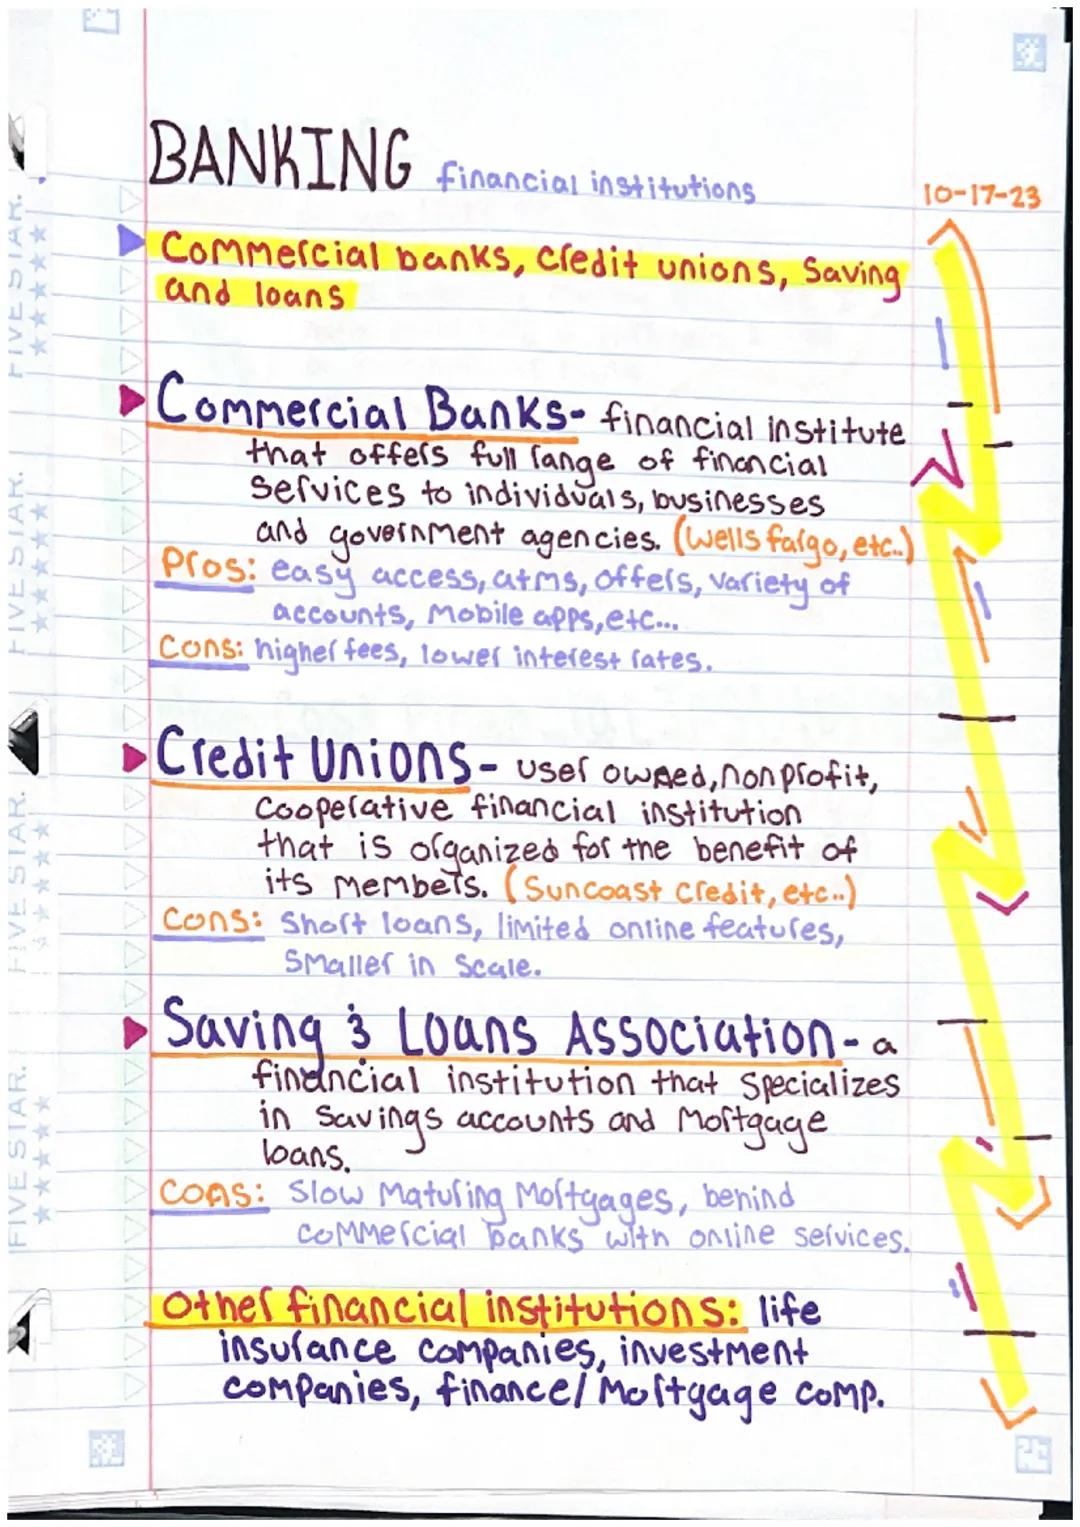 BANKING financial institutions
10-17-23
Commercial banks, Credit unions, Saving
and loans
Commercial Banks- financial institute
that offers full range of financial
services to individuals, businesses
and government agencies. (Wells fargo, etc..)
Pros: easy access, atms, offers, variety of
accounts, Mobile apps, etc...
Cons: higher fees, lower interest rates.
Credit Unions- user owned, nonprofit,
Cooperative financial institution
that is organized for the benefit of
its members. (Suncoast Credit, etc..)
Cons: Short loans, limited online features,
Smaller in Scale.
Saving & Loans Association- a
financial institution that Specializes
in Savings accounts and Mortgage
loans.
Cons: Slow Maturing Mortgages, behind
commercial banks with online services.
Other financial institutions: life
insurance companies, investment
companies, finance/ Mortgage comp.
FIVE STAR.
FIVE STAR.
FIVE STAR.
FIVE STAR.